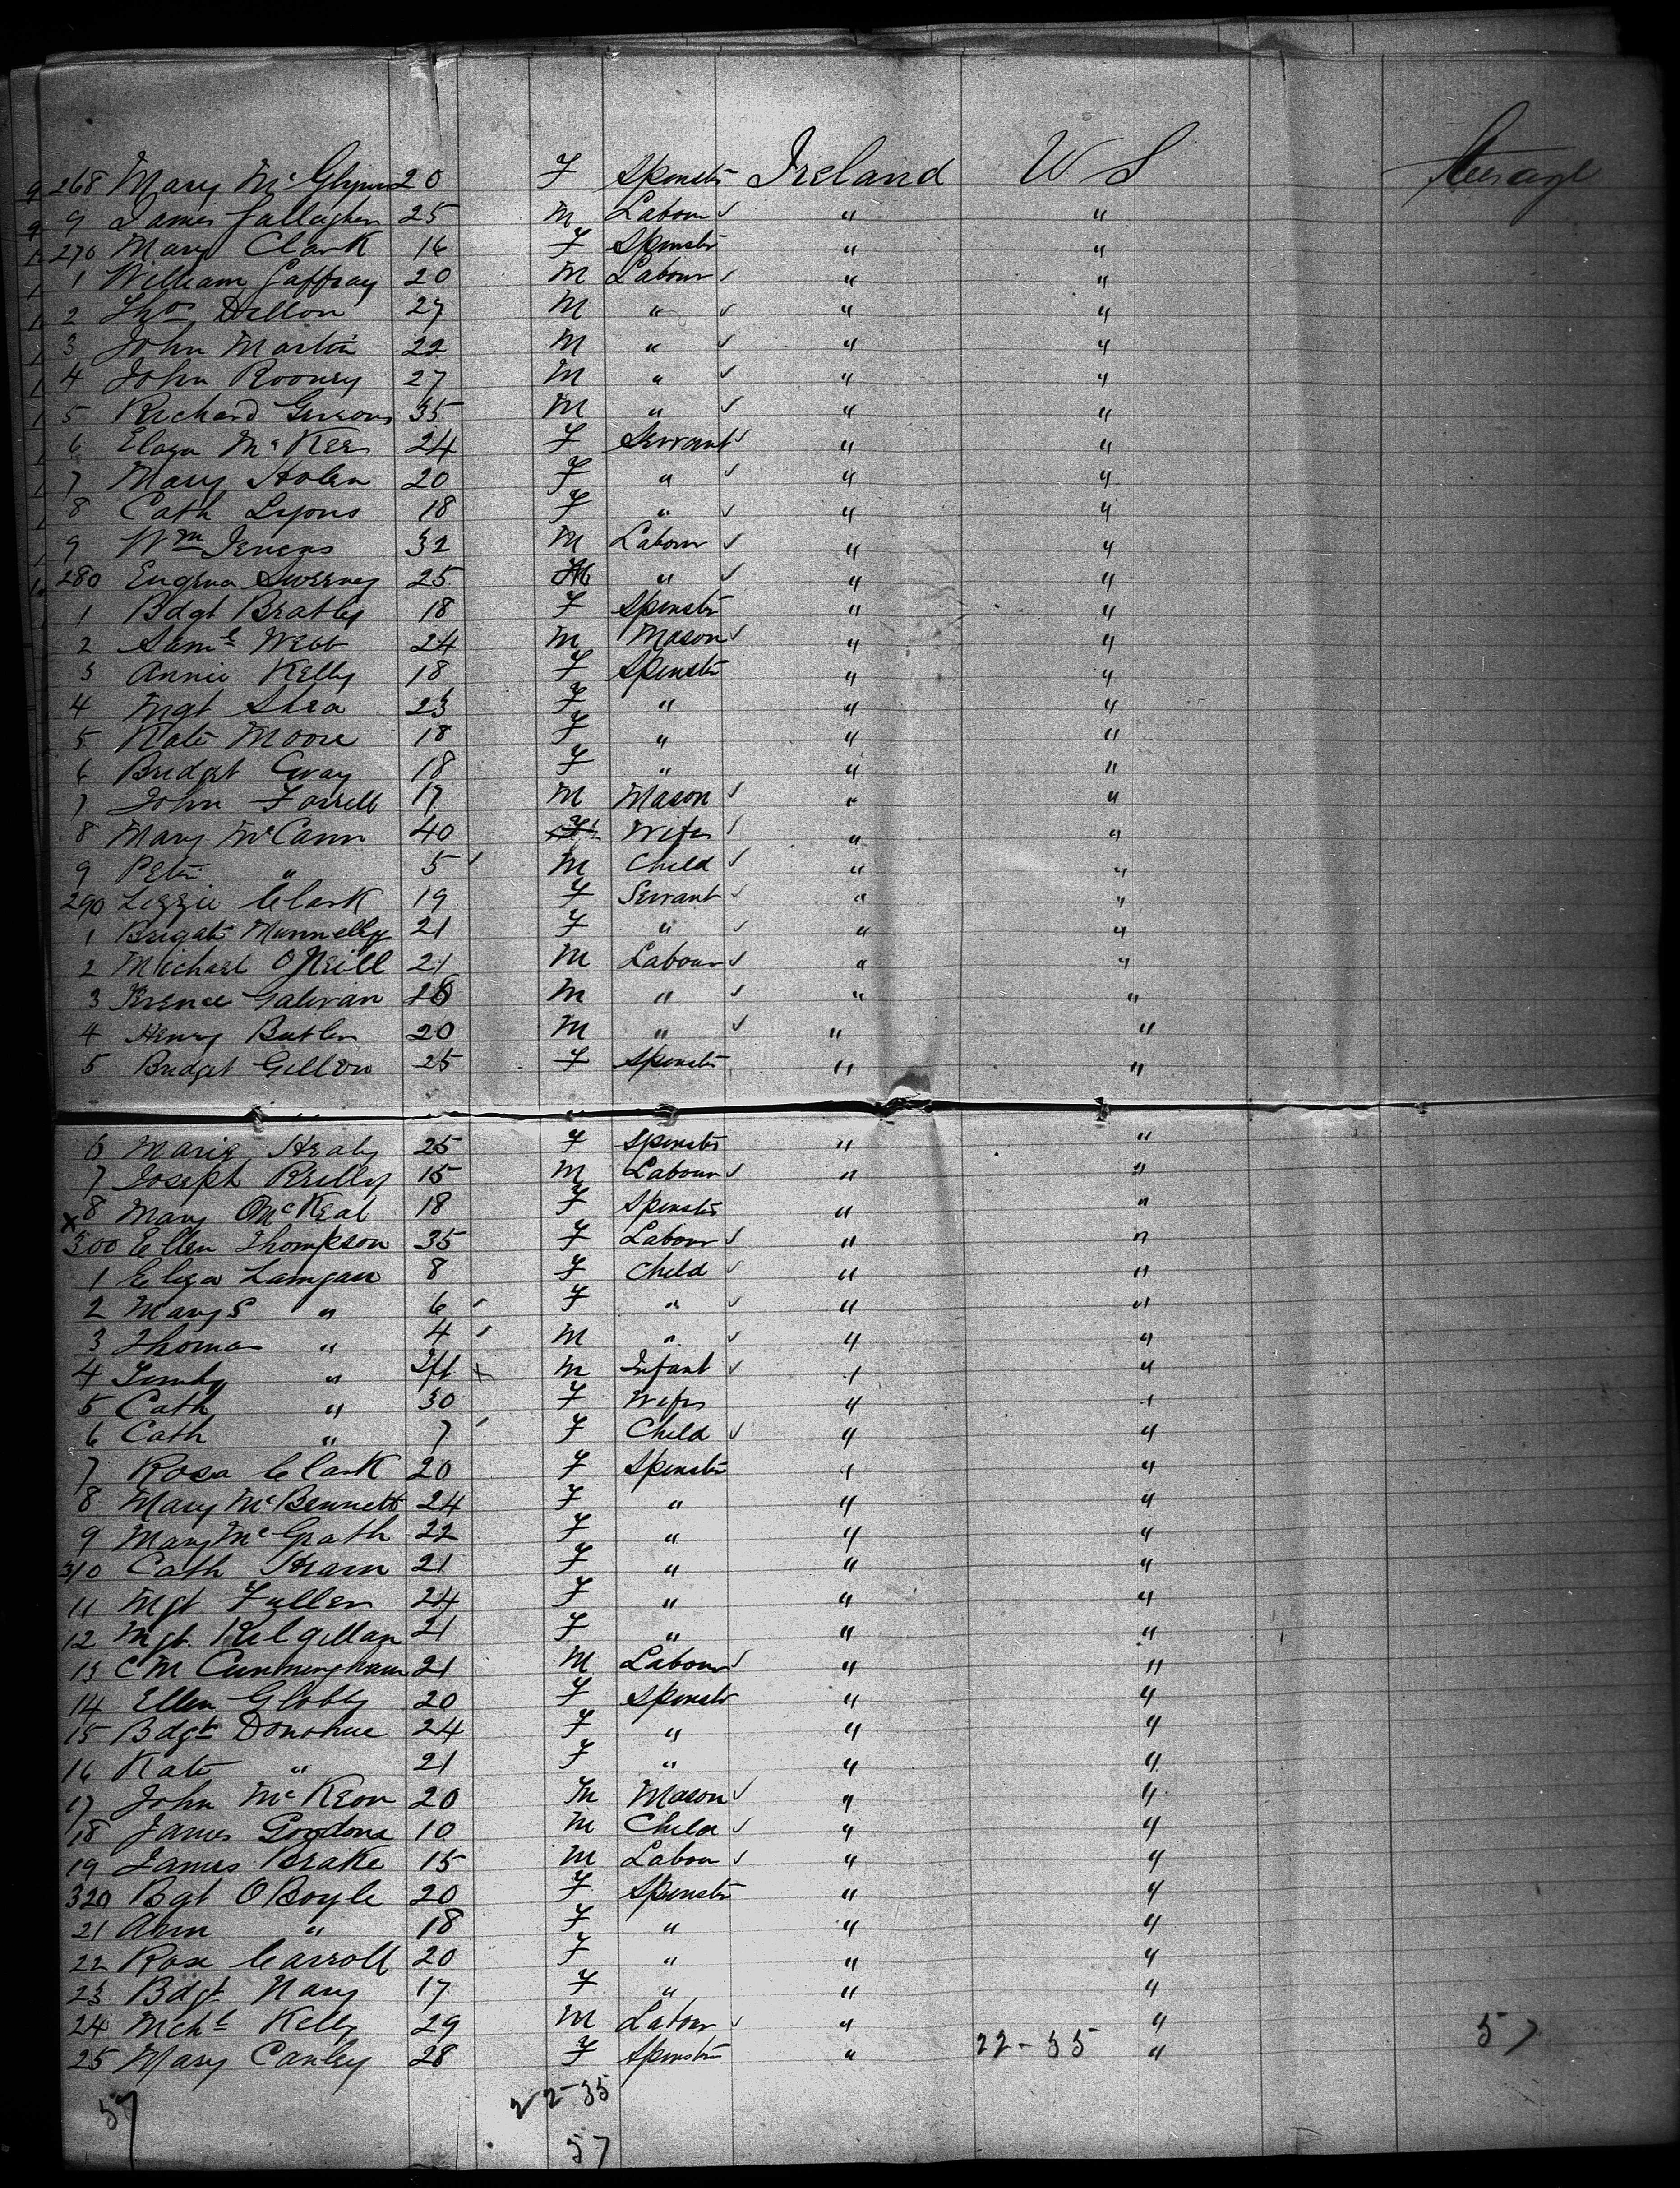 268 Mary McGlynn 20 F Spinster Ireland U S Steerage
9 James Gallagher 25 M Labour ✓ " "
270 Mary Clark 16 F Spinstr " "
1 William Gaffray 20 M Labour ✓ " "
2 Thos Dillon 27 M " ✓ " "
3 John Martin 22 M " ✓ " "
4 John Rooney 27 M " ✓ " "
5 Richard 35 M " ✓ " "
6 Eliza McKee 24 F Servant ✓ " "
7 Mary Holen 20 F " ✓ " "
8 Cath Lyons 18 F " ✓ " "
9 Wm 32 M Labour ✓ " "
280 Eugena Sweeney 25 M " ✓ " "
1 Bdgt Bratly 18 F Spinstr " "
2 Saml Webb 24 M Mason ✓ " "
3 Annie Kelly 18 F Spinstr " "
4 Mgt Shea 23 F " " "
5 Kate Moore 18 F " " "
6 Bridget 18 F " " "
7 John Farrell 17 M Mason ✓ " "
8 Mary McCann 40 F Wife ✓ " "
9 Peter " 5 ✓ M Child ✓ " "
290 Lizzie Clark 19 F Servant ✓ " "
1 Brigat Munnelly 21 F " ✓ " "
2 Michael ONeill 21 M Labour ✓ " "
3 Galivan M " ✓ " "
4 Henry Butler 20 M " ✓ " "
5 Bridget Gillon 25 F Spinster " "
6 Marie Healy 25 F Spinster " "
7 Joseph Reilly 15 M Labour ✓ " "
x 8 Mary 18 F Spinster " "
300 Ellen Thompson 35 F Labour ✓ " "
1 Eliza Lanigan 8 F Child ✓ " "
2 Mary S " 6 ✓ F " ✓ " "
3 Thomas " 4 ✓ M " ✓ " "
4 " Ift x M Infant ✓ " "
5 Cath " 30 F Wife " "
6 Cath " 7 ✓ F Child ✓ " "
7 Rosa Clark 20 F Spinstr " "
8 Mary McBennett 24 F " " "
9 Mary McGrath 22 F " " "
310 Cath 21 F " " "
11 Mgt Fuller 24 F " " "
12 Mgt. Kilgillan 21 F " " "
13 C M Cunningham 21 M Labour ✓ " "
14 Ellen Globby 20 F Spinstr " "
15 Bdgt Donohue 24 F " " "
16 Kate " 21 F " " "
17 John McKeon 20 M Mason ✓ " "
18 James Gordone 10 M Child ✓ " "
19 James Brake 15 M Labour ✓ " "
320 Bgt OBoyle 20 F Spinstr " "
21 Ann " 18 F " " "
22 Rose Carroll 20 F " " "
23 Bdgt Nary 17 F " " "
24 Mchl Kelly 29 M Labour ✓ " "
25 Mary Canley 28 F Spinstr " 22-35 " 57
57 22-35
57